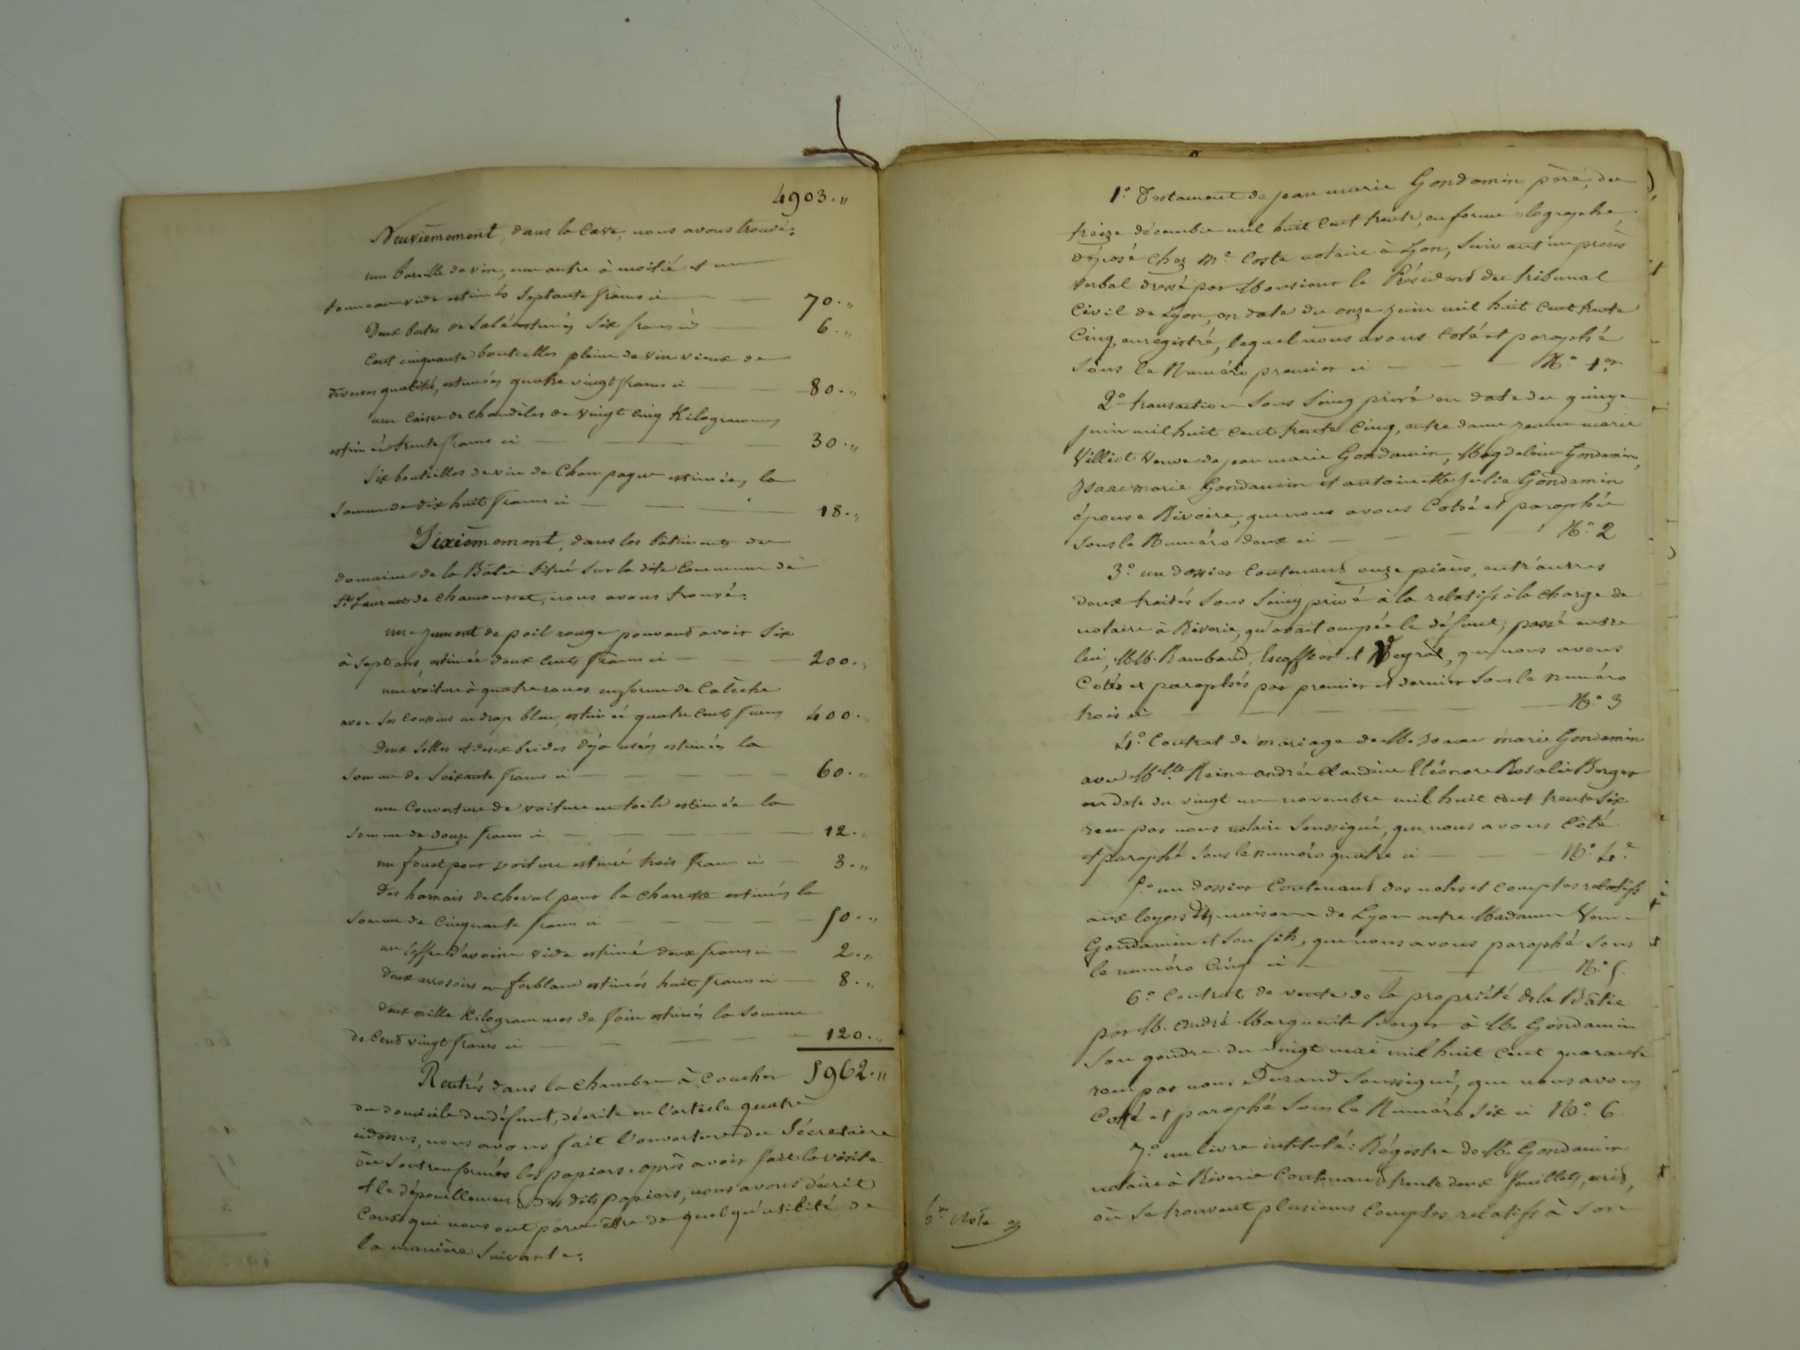 4903.〃
Neuvièmement, dans la Cave, nous avons trouvé:
une bareille de vin, une autre à moitié et un
tonneau vide estimés Septante francs ci 70.〃
Deux bates de Salé estimées Six francs ci 6.〃
Cent cinquante bouteilles pleine de vin vieux de
diverses qualité, estimées quatre vingt francs ci 80.〃
une Caisse de chandèles de vingt cinq Kilogrammes
estimée trente francs ci 30.〃
Six bouteilles de vin de Champagne estimées la
Somme de dix huit francs ci 18.〃
Dixièmement, dans les bâtiments du
domaine de la Bâtie Situé Sur la dite Commune de
St. Laurent de Chamousset, nous avons trouvé:
une jument de poil rouge pouvant avoir Six
à Sept ans, estimée deux cents francs ci 200.〃
une voiture à quatre roues en forme de Calèche
avec Ses Coussins en drap bleu, estimée quatre Cents francs 400.〃
Deux Selles et deux brides déjà usées estimées la
Somme de Soixante francs ci 60.〃
une Couverture de voiture en toile estimée la
Somme de douze francs ci 12.〃
un fouet pour voiture estimé trois francs ci 3.〃
Des harnais de cheval pour la charette estimés la
Somme de Cinquante francs ci 50.〃
un Coffre d'avoine vide estimé deux francs ci 2.〃
Deux arrosoirs en ferblanc estimés huit francs ci 8.〃
Deux mille Kilogrammes de foin estimés la Somme
de Cent vingt francs ci 120.〃
Rentrés dans la chambre à Coucher 5962.〃
du domicile du défunt, décrite en l'article quatre
cidessus, nous avons fait l'ouverture du Sécretaire
où Sont renfermés les papiers. après avoir fait la visite
et le dépouillement des dits papiers, nous avons décrit
Ceux qui nous ont paru être de quelqu'utilité de
la manière Suivante:
1.° Testament de jean marie Gondamin père, du
treize décembre mil huit cent trente, en forme olographe,
déposé chez Me. Coste notaire à Lyon, Suivant un procès
verbal dressé par Monsieur le Président du tribunal
Civil de Lyon, en date du onze juin mil huit Cent trente
Cinq, enregistré, lequel nous avons Coté et paraphé
Sous le Numéro premier ci N.° 1er
2.° transaction Sous Seing privé en date du quinze
juin mil huit cent trente Cinq, entre dame jeanne marie
Villiet Veuve de jean marie Gondamin, Magdelaine Gondamin,
Isaac marie Gondamin et antoinette Julie Gondamin
épouse Rivoire, que nous avons Cotée et paraphée
Sous le Numéro deux ci N.° 2
3.° un dossier Contenant onze pièces, entr'autres
deux traités Sous Seing privé à la relatifs à la charge de
notaire à Riverie, qu'avait occupée le défunt; passé entre
lui, MM. Rambaud, Escoffier et Veyrat, que nous avons
Cotés et paraphés par premier et dernier Sous le numéro
trois ci N.° 3
4.° Contrat de mariage de M. Isaac marie Gondamin
avec Melle. Reine andrée Claudine Eléonore Rosalie Berger
en date du vingt un novembre mil huit cent trente Six
reçu par nous notaire Soussigné, que nous avons Côté
et paraphé Sous le numéro quatre ci N.° 4.°
5.° un dossier Contenant des notes et comptes relatifs
aux loyers des maisons de Lyon entre Madame Veuve
Gondamin et Son fils, que nous avons paraphé Sous
le numéro Cinq ci N.° 5.
6.° Contrat de vente de la propriété de la Bâtie
par M. andré Marguerite Berger à M. Gondamin
Son gendre du vingt mai mil huit Cent quarante
reçu par nous Durand Soussigné, que nous avons
Coté et paraphé Sous le Numéro Six ci N.° 6.
7.° un livre intitulé: Régistre de M. Gondamin
notaire à Riverie Contenant trente deux feuillets, écrits,
où Se trouvent plusieurs Comptes relatifs à Son